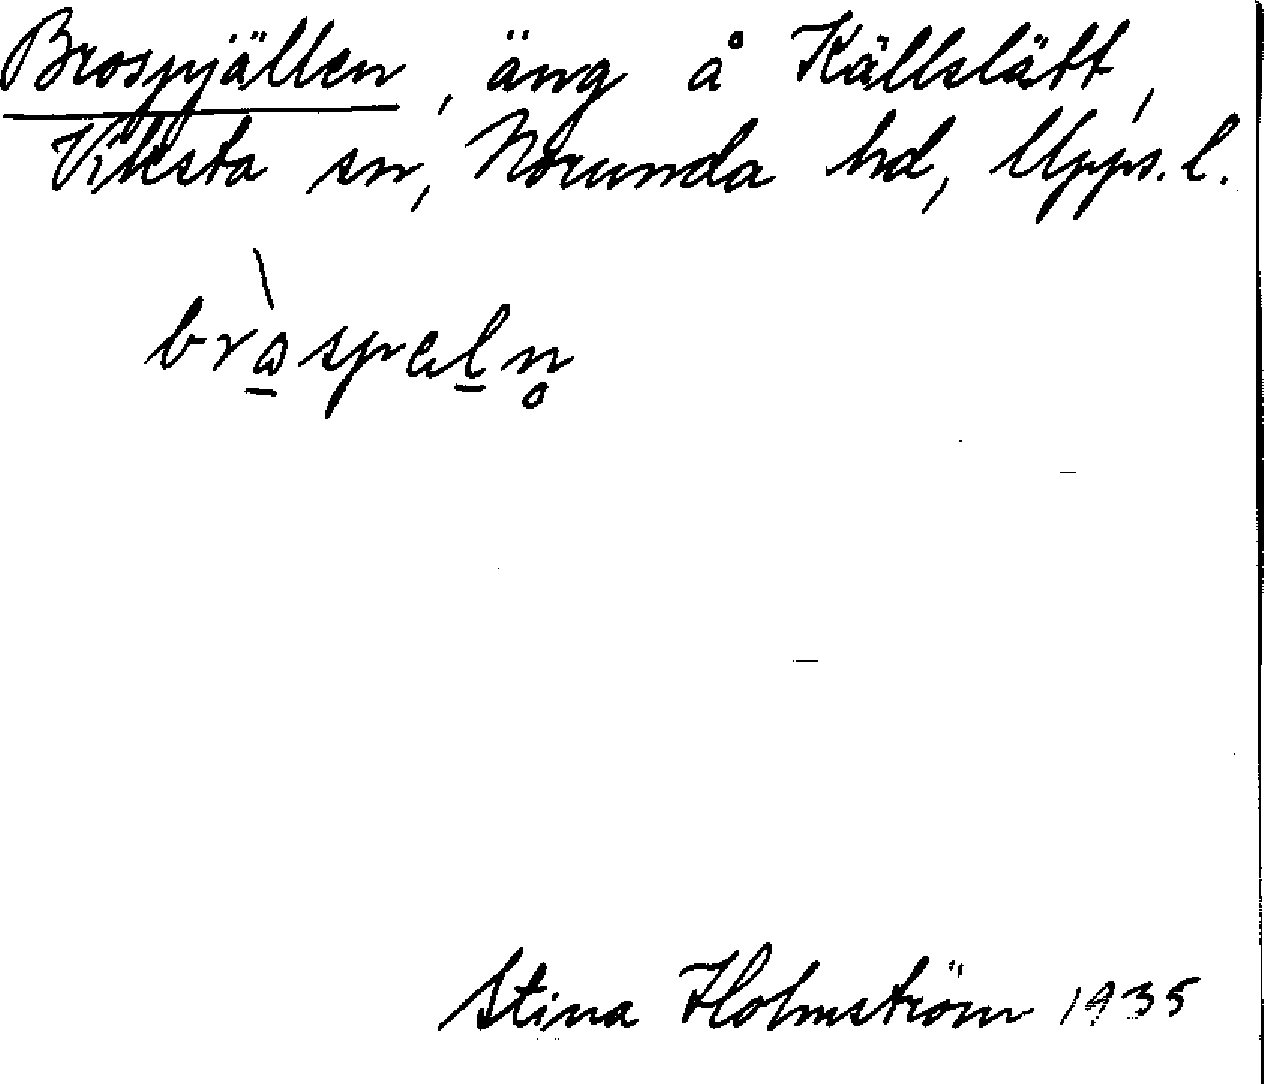 Brospjällen, äng å Källslätt,
Viksta sn, Norunda hd, Upps. l.
bròspæln̥
Stina Holmström 1935